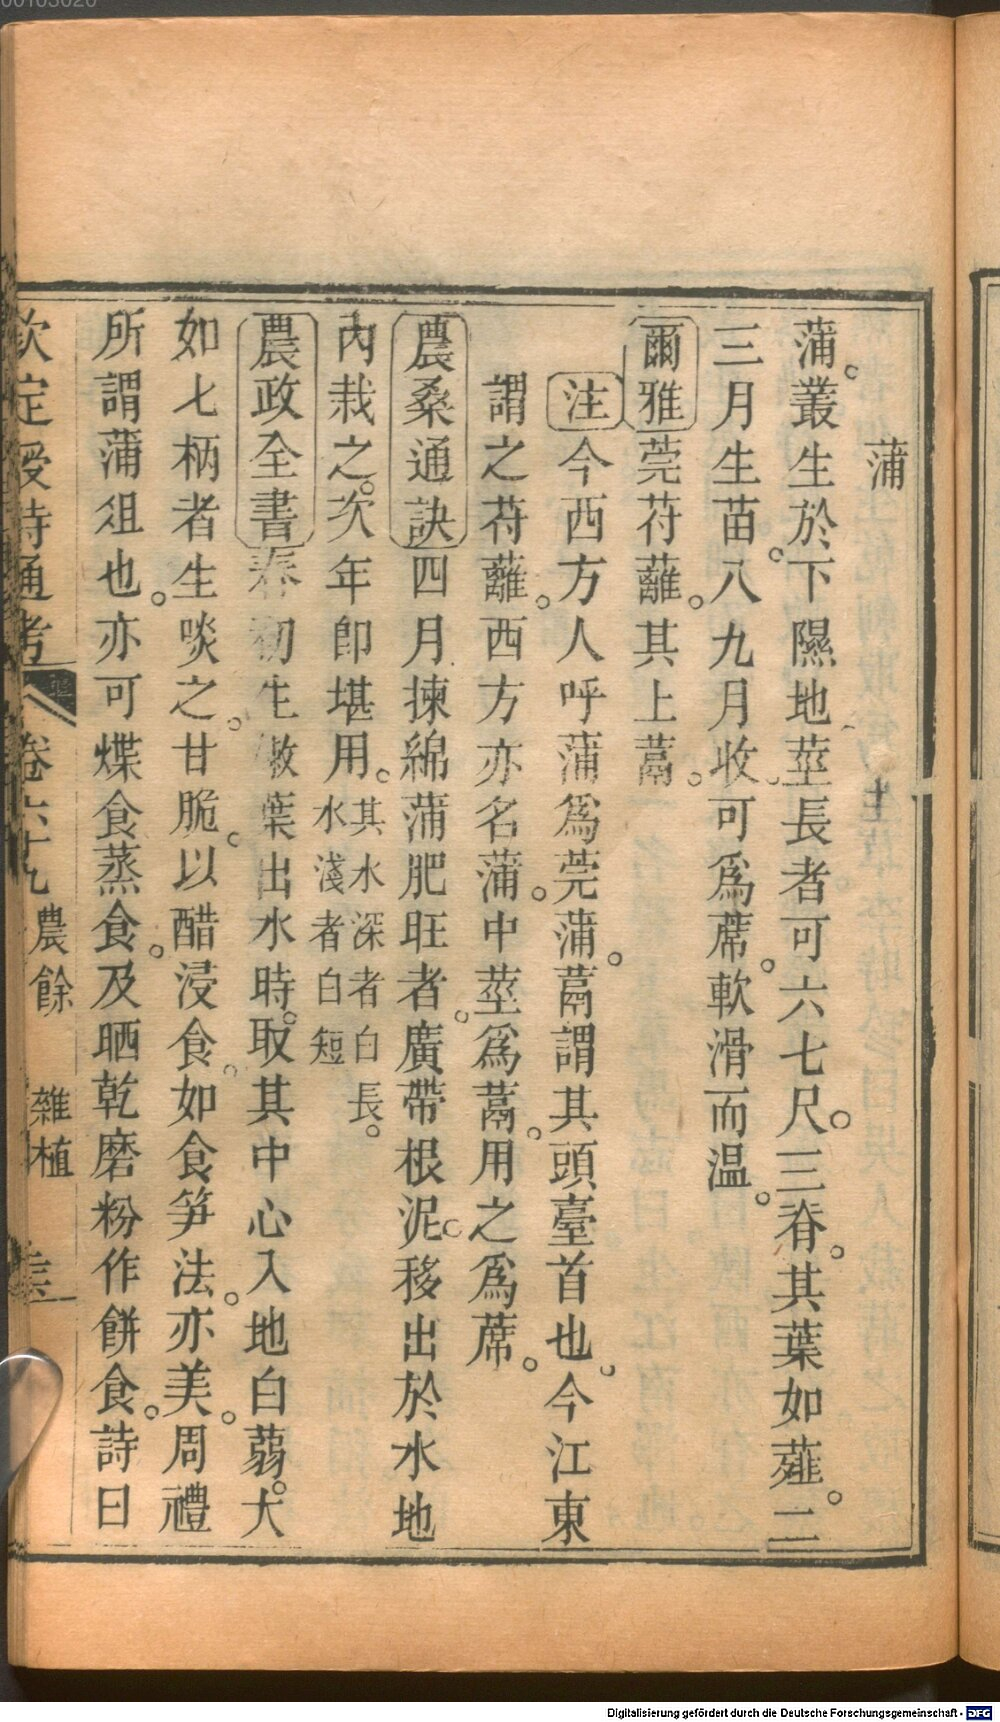 蒲
蒲。叢生於下隰地莖長者可六七尺。三脊。其葉如薤。二
三月生苗。八九月收可爲蓆。軟滑而温。
爾雅莞苻蘺。其上蒚。
注今西方人呼蒲爲莞蒲。蒚謂其頭臺首也。今江東
謂之苻蘺。西方亦名蒲。中莖爲蒚。用之爲蓆。
農桑通訣四月揀綿蒲肥旺者。廣帶根泥。移出於水地
内栽之。次年卽堪用。其水深者白長。
水淺者白短
農政全書春初生嫩葉出水時。取其中心入地白蒻。大
如匕柄者生啖之。甘脆。以醋浸食。如食笋法。亦美。周禮
所謂蒲俎也。亦可煠食蒸食。及晒乾磨粉作餅食。詩曰
欽定授時通考 卷六十九 農餘 雜植
Digitalisierung gefördert durch die Deutsche Forschungsgemeinschaft - DFG